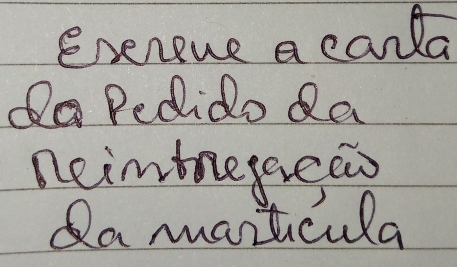 Escreve a carta
da Pedido da
reintregação
da martícula